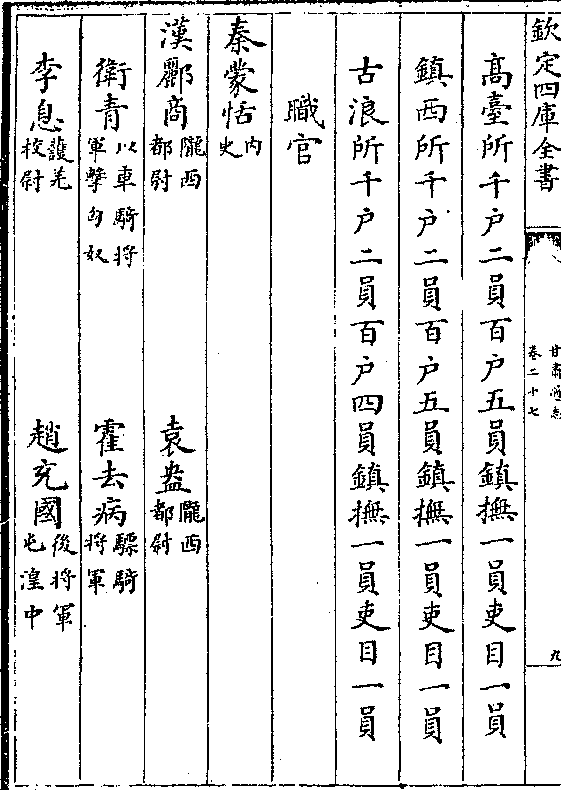 欽定四庫全書
甘肅通志
卷二十七
九
高臺所千户二員百户五員鎮撫一員吏目一員
鎮西所千户二員百户五員鎮撫一員吏目一員
古浪所千户二員百户四員鎮撫一員吏目一員
職官
秦蒙恬内史
漢酈商隴西都尉 袁盎隴西都尉
衛青以車騎將軍擊匈奴 霍去病驃騎將軍
李息護羌校尉 趙充國後將軍屯湟中